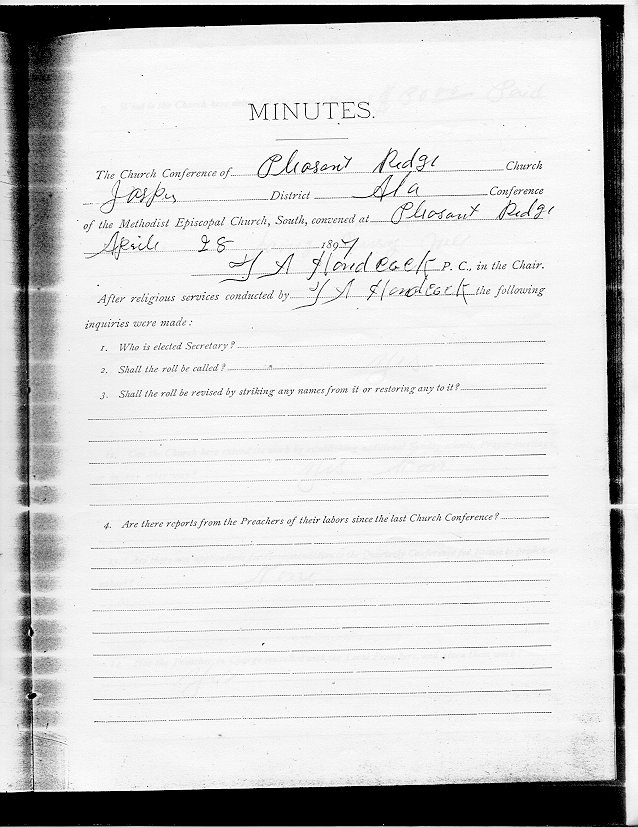 MINUTES.
The Church Conference of Pleasant Ridge Church
Jasper District Ala Conference
of the Methodist Episcopal Church, South, convened at Pleasant Ridge
Aprile 28 1897
A Handcock P. C., in the Chair.
After religious services conducted by A Handcock the following
inquiries were made :
1. Who is elected Secretary ?
2. Shall the roll be called ?
3. Shall the roll be revised by striking any names from it or restoring any to it ?
4. Are there reports from the Preachers of their labors since the last Church Conference ?